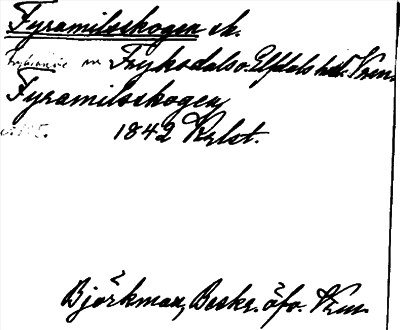 Fyramilsskogen sk.
Fryksdals o. Elfdals hdr Vrm.
Fyramilsskogen
1842 Krlst.
Björkman, Beskr. öfv. Vrm.